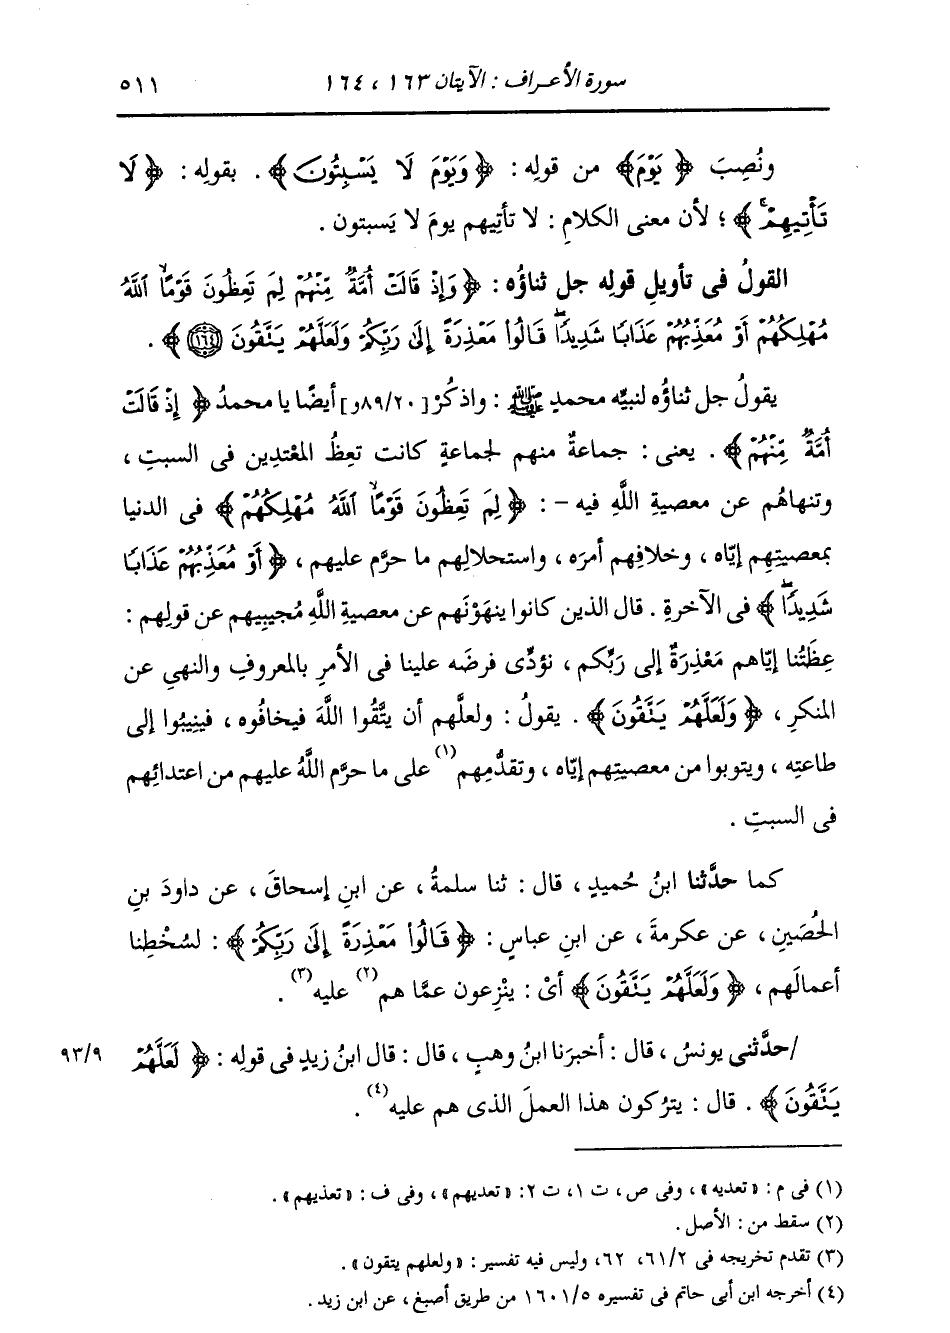 سورة الأعراف : الآيتان ١٦٣ ، ١٦٤
٥١١
ونُصِبَ ﴿ يَوْمَ﴾ من قولِه : ﴿ وَيَوْمَ لَا يَسْبِتُونَ﴾ . بقولِه : ﴿ لَا
تَأْتِيهِمْ ﴾ ؛ لأن معنى الكلامِ : لا تأتيهم يومَ لا يَسبتون .
القولُ فى تأويلِ قولِه جل ثناؤُه : ﴿ وَإِذْ قَالَتْ أُمَّةٌ مِّنْهُمْ لِمَ تَعِظُونَ قَوْمًا اللَّهُ
مُهْلِكُهُمْ أَوْ مُعَذِّبُهُمْ عَذَابًا شَدِيدًا قَالُوا مَعْذِرَةً إِلَى رَبِّكُمْ وَلَعَلَّهُمْ يَتَّقُونَ ١٦٤ ﴾ .
يقولُ جل ثناؤُه لنبيِّه محمدٍ ﷺ : واذكُرْ [٨٩/٢٠و] أيضًا يا محمدُ ﴿ إِذْ قَالَتْ
أُمَّةٌ مِّنْهُمْ ﴾ . يعنى : جماعةٌ منهم لجماعةٍ كانت تعِظُ المعْتدِين فى السبتِ ،
وتنهاهُم عن معصيةِ اللَّهِ فيه – : ﴿ لِمَ تَعِظُونَ قَوْمًا اللَّهُ مُهْلِكُهُمْ ﴾ فى الدنيا
بمعصيتِهِم إيَّاه ، وخلافِهم أمرَه ، واستحلالِهم ما حرَّم عليهم ، ﴿ أَوْ مُعَذِّبُهُمْ عَذَابًا
شَدِيدًا ﴾ فى الآخرةِ . قال الذين كانوا ينهَوْنَهم عن معصيةِ اللَّهِ مُجيبِيهم عن قولِهم :
عِظَتُنا إيَّاهم مَعْذِرَةٌ إلى رَبِّكم ، نؤدِّى فرضَه علينا فى الأمرِ بالمعروفِ والنهيِ عن
المنكرِ ، ﴿ وَلَعَلَّهُمْ يَتَّقُونَ ﴾ . يقولُ : ولعلَّهم أن يتَّقُوا اللَّهَ فيخافُوه ، فينِيبُوا إلى
طاعتِه ، ويتوبوا من معصيتِهم إيَّاه ، وتقدُّمِهم(١) على ما حرَّم اللَّهُ عليهم من اعتدائِهم
فى السبتِ .
كما حدَّثنا ابنُ حُميدٍ ، قال : ثنا سلمةُ ، عن ابنِ إسحاقَ ، عن داودَ بنِ
الحُصَينِ ، عن عكرمةَ ، عن ابنِ عباسٍ : ﴿ قَالُوا مَعْذِرَةً إِلَى رَبِّكُمْ ﴾ : لسُخْطِنا
أعمالَهم ، ﴿ وَلَعَلَّهُمْ يَتَّقُونَ ﴾ أىْ : ينْزِعون عمَّا هم(٢) عليه(٣) .
/حدَّثنى يونسُ ، قال : أخبرَنا ابنُ وهبٍ ، قال : قال ابنُ زيدٍ فى قولِه : ﴿ لَعَلَّهُمْ
٩٣/٩
يَتَّقُونَ ﴾ . قال : يترُكون هذا العملَ الذى هم عليه(٤) .
(١) فى م : «تعديه» ، وفى ص ، ت ١، ت ٢: «تعديهم» ، وفى ف : «تعذيهم» .
(٢) سقط من : الأصل .
(٣) تقدم تخريجه فى ٦١/٢، ٦٢، وليس فيه تفسير : «ولعلهم يتقون» .
(٤) أخرجه ابن أبى حاتم فى تفسيره ١٦٠١/٥ من طريق أصبغ ، عن ابن زيد .